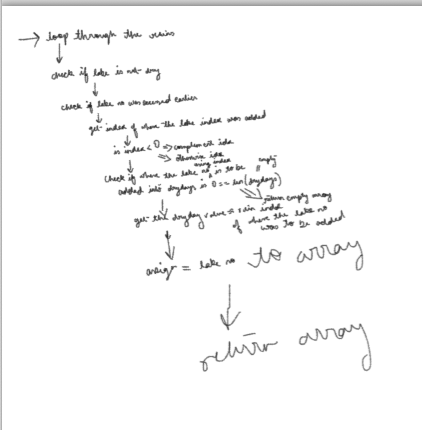 → loop through the rains
check if lake is not dry
check if lake no was accessed earlier
get index of where the lake index was added
is index < 0 => complement idx
=> otherwise idx
using index
check if where the lake no is to be
added into drydays is 0 == len(drydays)
empty
return empty array
get the dryday value = rain index
of where the lake no
was to be added
assign = lake no to array
return array